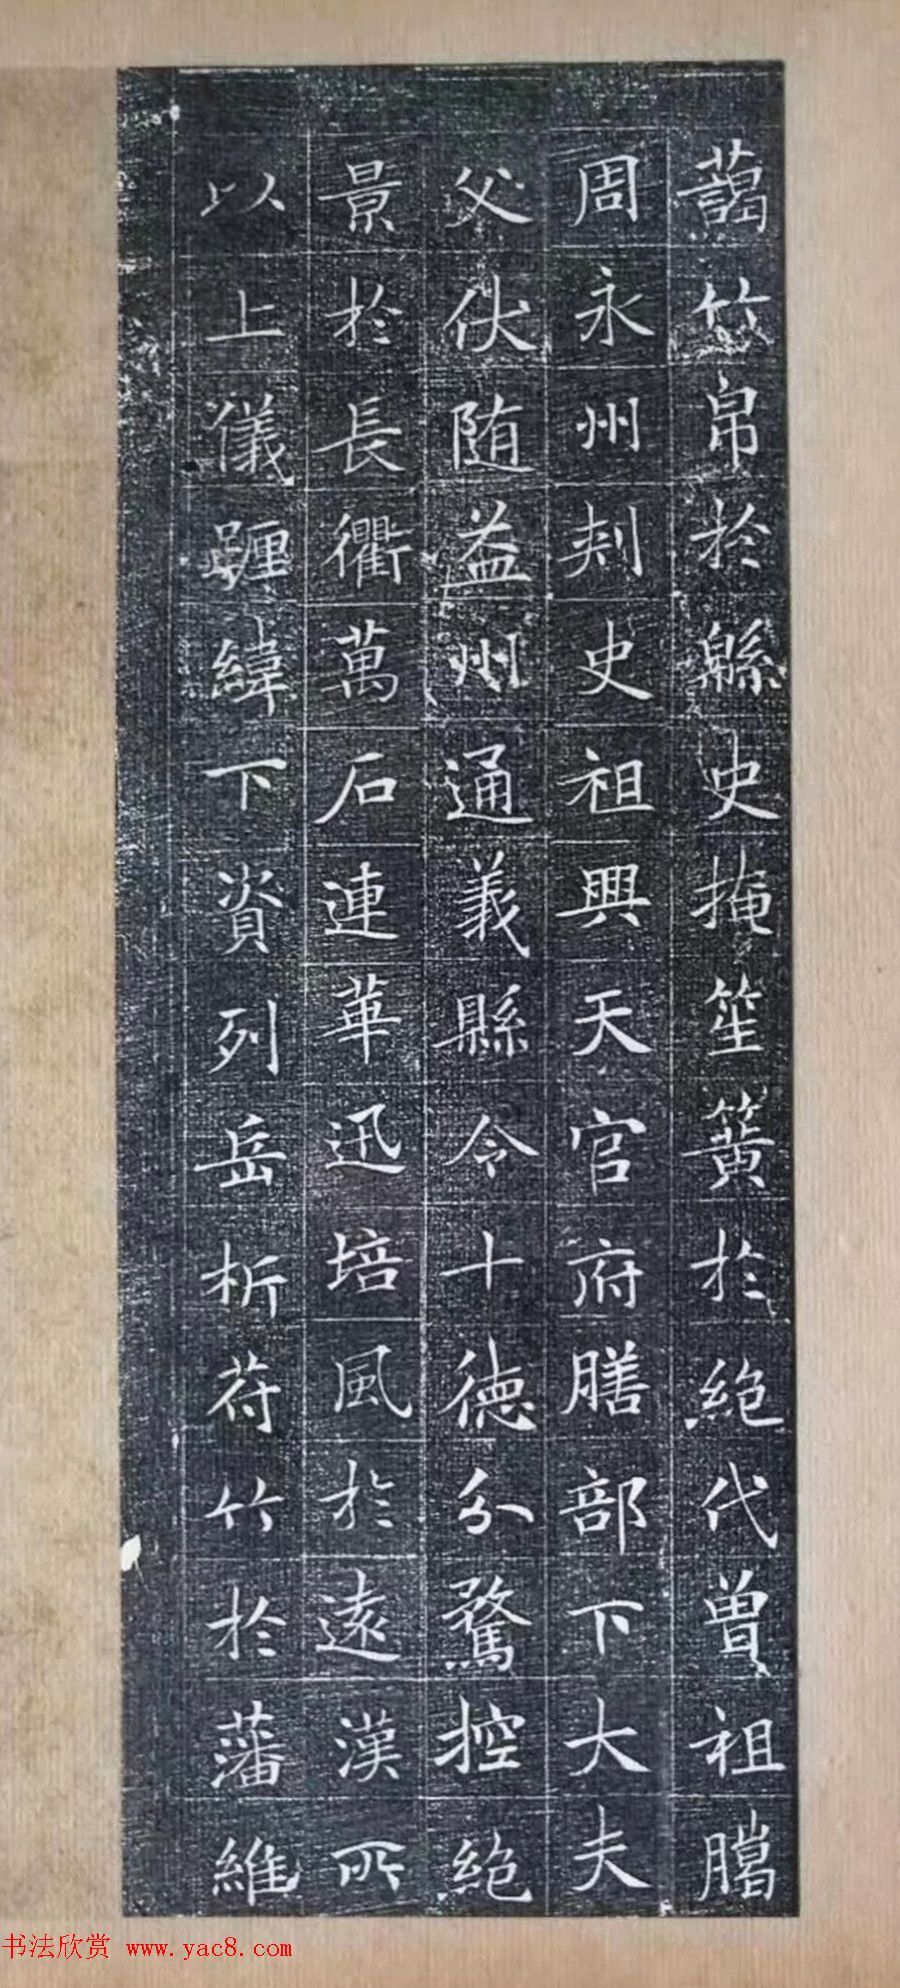 蔼竹帛於緜史掩笙簧於絶代曽祖騰
周永州刾史祖興天官府膳部下大夫
父伏随益州通義縣令十德分鶩控絶
景於長衢萬石連華迅培風於遠漢所
以上儀躔緯下資列岳析苻竹於藩維
书法欣赏 www.yac8.com